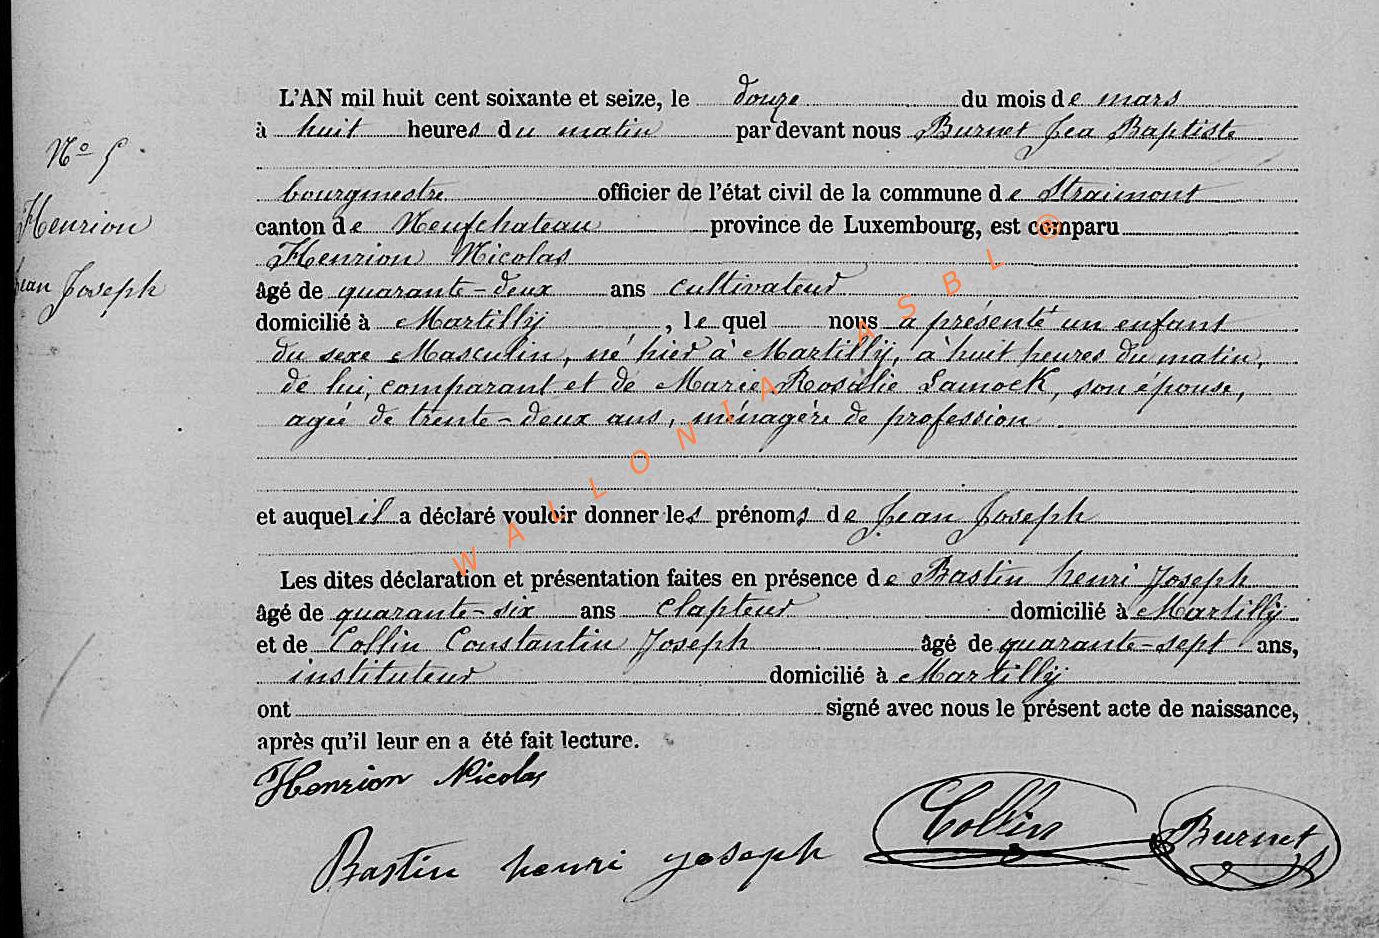 L'AN mil huit cent soixante et seize, le douze du mois de mars
à huit heures du matin par devant nous Burnet Jea Baptiste
Nº 5
bourgmestre officier de l'état civil de la commune de Straimont
Henrion
canton de Neufchateau province de Luxembourg, est comparu
Henrion Nicolas
Jean Joseph
âgé de quarante-deux ans cultivateur
domicilié à Martilly, le quel nous a présenté un enfant
du sexe Masculin, né hier à Martilly, à huit heures du matin,
de lui, comparant et de Marie Rosalie Lamock, son épouse,
agée de trente-deux ans, ménagère de profession
et auquel il a déclaré vouloir donner les prénoms de Jean Joseph
Les dites déclaration et présentation faites en présence de Bastin henri Joseph
âgé de quarante-six ans clapteur domicilié à Martilly
et de Collin Constantin Joseph âgé de quarante-sept ans,
instituteur domicilié à Martilly
ont signé avec nous le présent acte de naissance,
après qu'il leur en a été fait lecture.
Henrion Nicolas
Bastin henri joseph Collin Burnet
WALLONIA ASBL ®